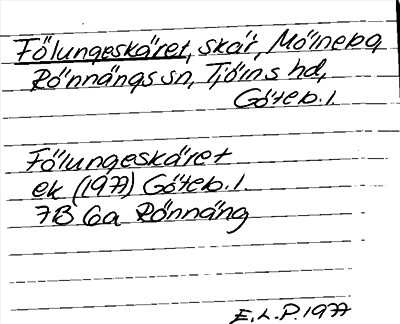 Fölungeskäret, skär, Möineba,
Rönnängs sn, Tjörns hd,
Göteb. l.
Fölungeskäret
ek (1977) Göteb. l.
7B 6a Rönnäng
E.L.P. 1977